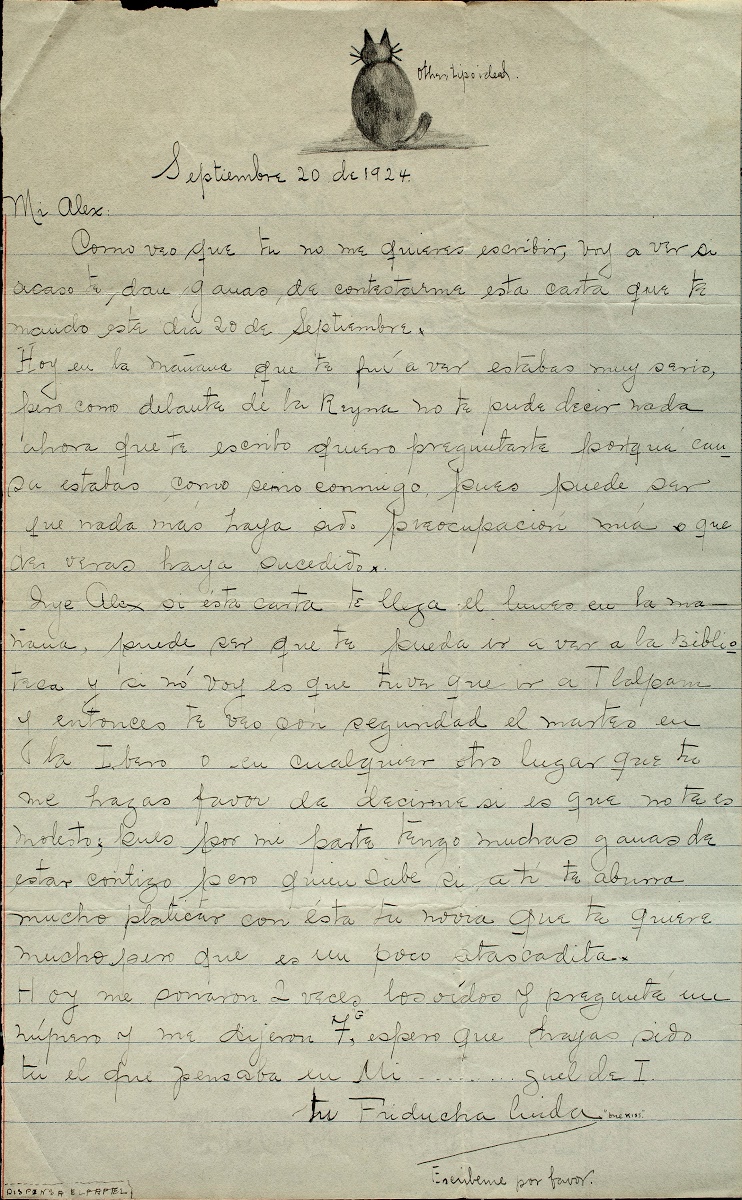 Other tipo ideal.
Septiembre 20 de 1924.
Mi Alex:
Como veo que tu no me quieres escribir, voy a ver si
acaso te dan ganas de contestarme esta carta que te
mando este día 20 de Septiembre.
Hoy en la mañana que te fuí a ver estabas muy serio,
pero como delante de la Reyna no te pude decir nada
ahora que te escribo quiero preguntarte porqué cau
sa estabas como serio conmigo, pues puede ser
que nada más haya sido preocupación mía o que
de veras haya sucedido.
Oye Alex si ésta carta te llega el lunes en la ma-
ñana, puede ser que te pueda ir a ver a la Biblio-
teca y si nó voy es que tuve que ir a Tlalpam
y entonces te veo con seguridad el martes en
la Ibero o en cualquier otro lugar que tu
me hagas favor de decirme si es que no te es
molesto; pues por mi parte tengo muchas ganas de
estar contigo pero quien sabe si a tí te aburra
mucho platicar con ésta tu novia que te quiere
mucho pero que es un poco atascadita.
Hoy me sonaron 2 veces los oídos y pregunté un
número y me dijeron 7, espero que hayas sido
tu el que pensaba en Mi ........ guel de I.
tu Friducha linda
Escríbeme por favor.
DISPENSA EL PAPEL